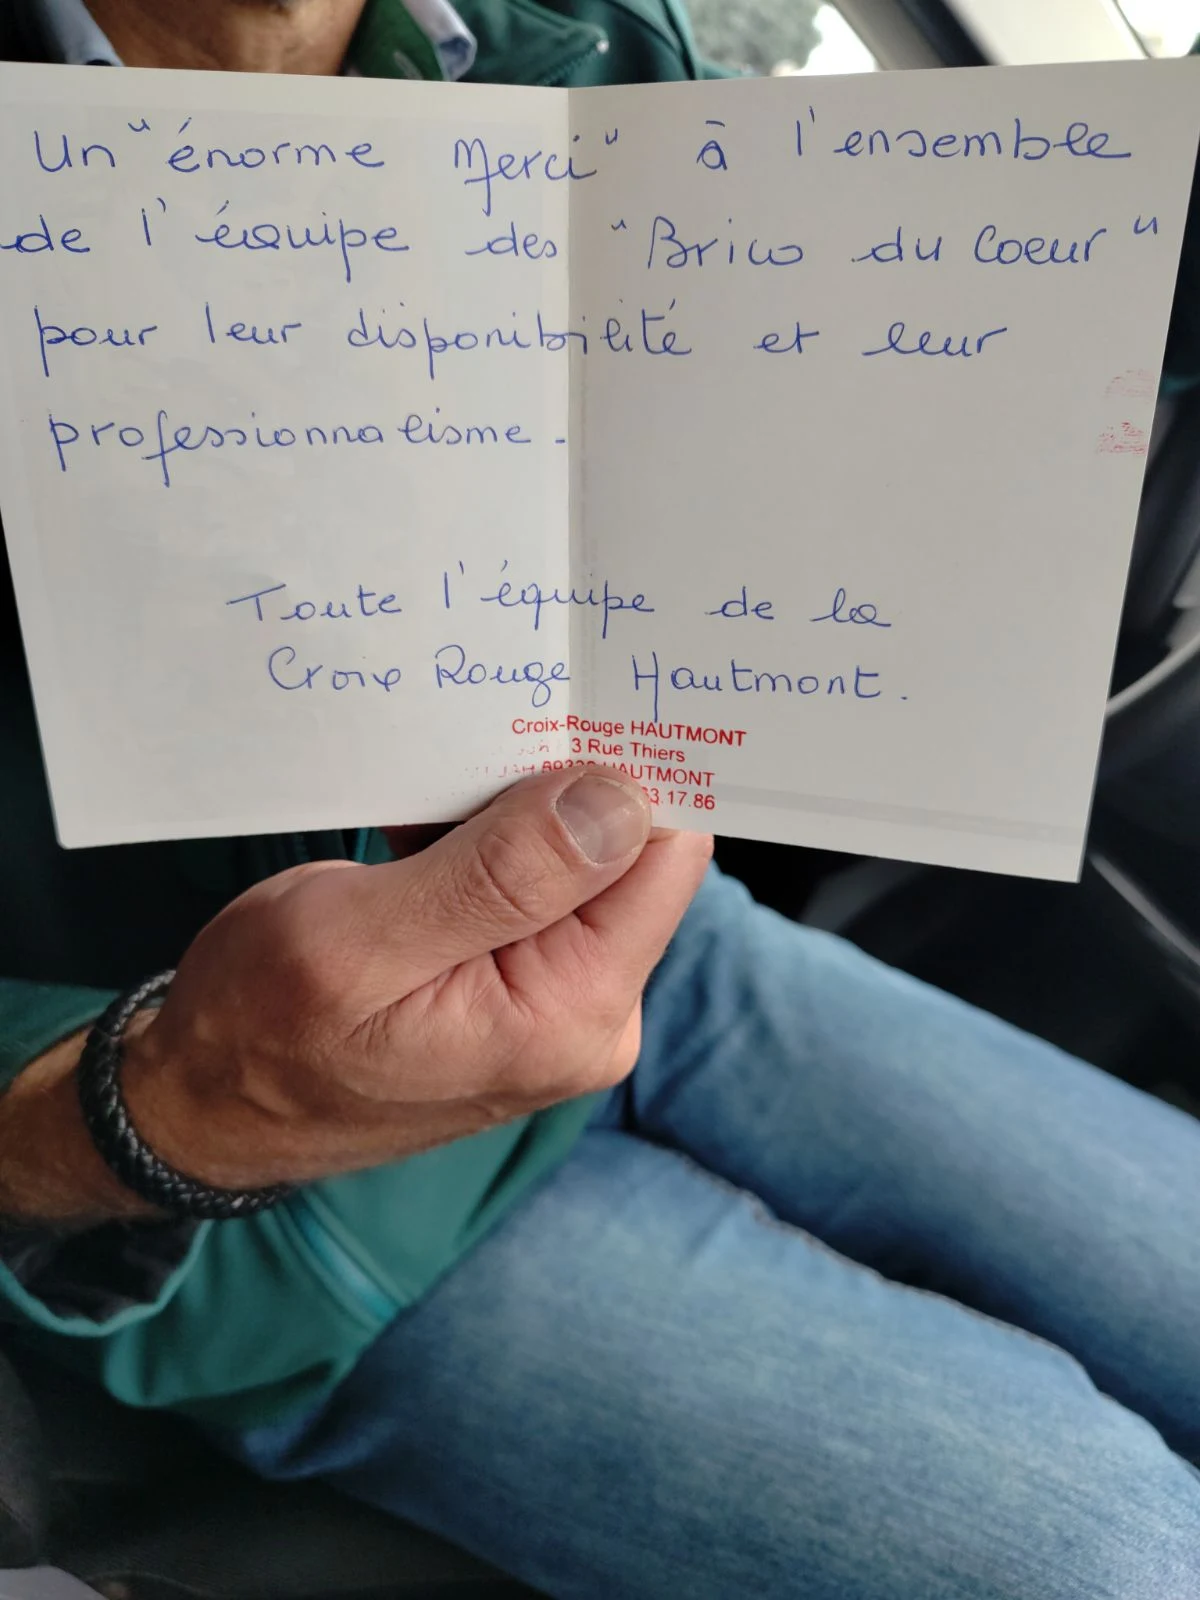 Un "énorme Merci" à l'ensemble
de l'équipe des "Brico du Coeur"
pour leur disponibilité et leur
professionnalisme.
Toute l'équipe de la
Croix Rouge Hautmont.
Croix-Rouge HAUTMONT
3 Rue Thiers
HAUTMONT
63.17.86